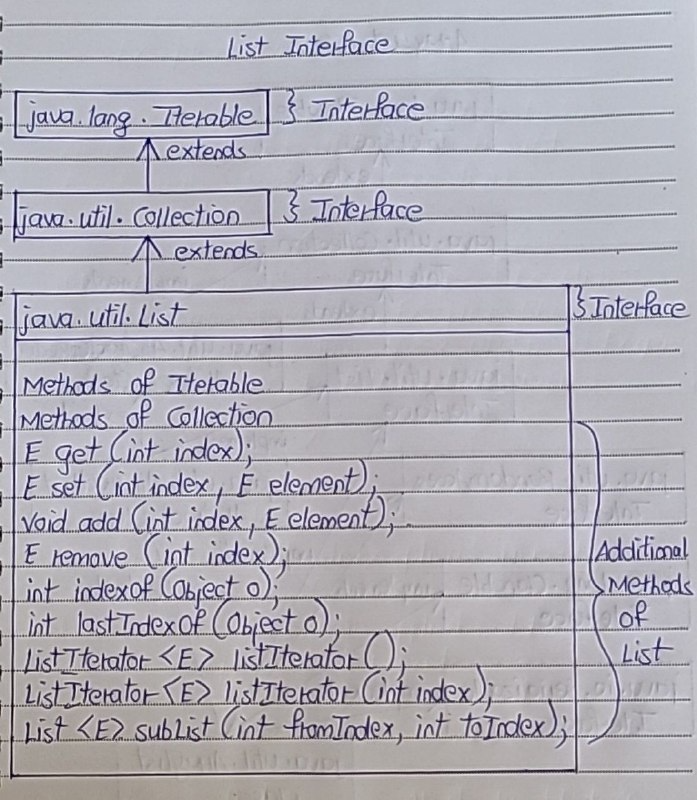 List Interface
java.lang.Iterable } Interface
extends
java.util.Collection } Interface
extends
java.util.List } Interface
Methods of Iterable
Methods of Collection
E get (int index);
E set (int index, E element);
void add (int index, E element);
E remove (int index);
int indexof (Object o);
int lastIndexOf (Object o);
ListIterator <E> listIterator ();
ListIterator <E> listIterator (int index);
List <E> subList (int fromIndex, int toIndex);
Additional
Methods
of
List